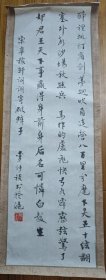 醉里挑灯看剑梦回吹角连营八百里分麾下炙五十弦翻
塞外声沙场秋点兵 马作的卢飞快弓如霹雳弦惊了
却君王天下事赢得生前身后名可怜白发生
宋辛稼轩词调寄破阵子